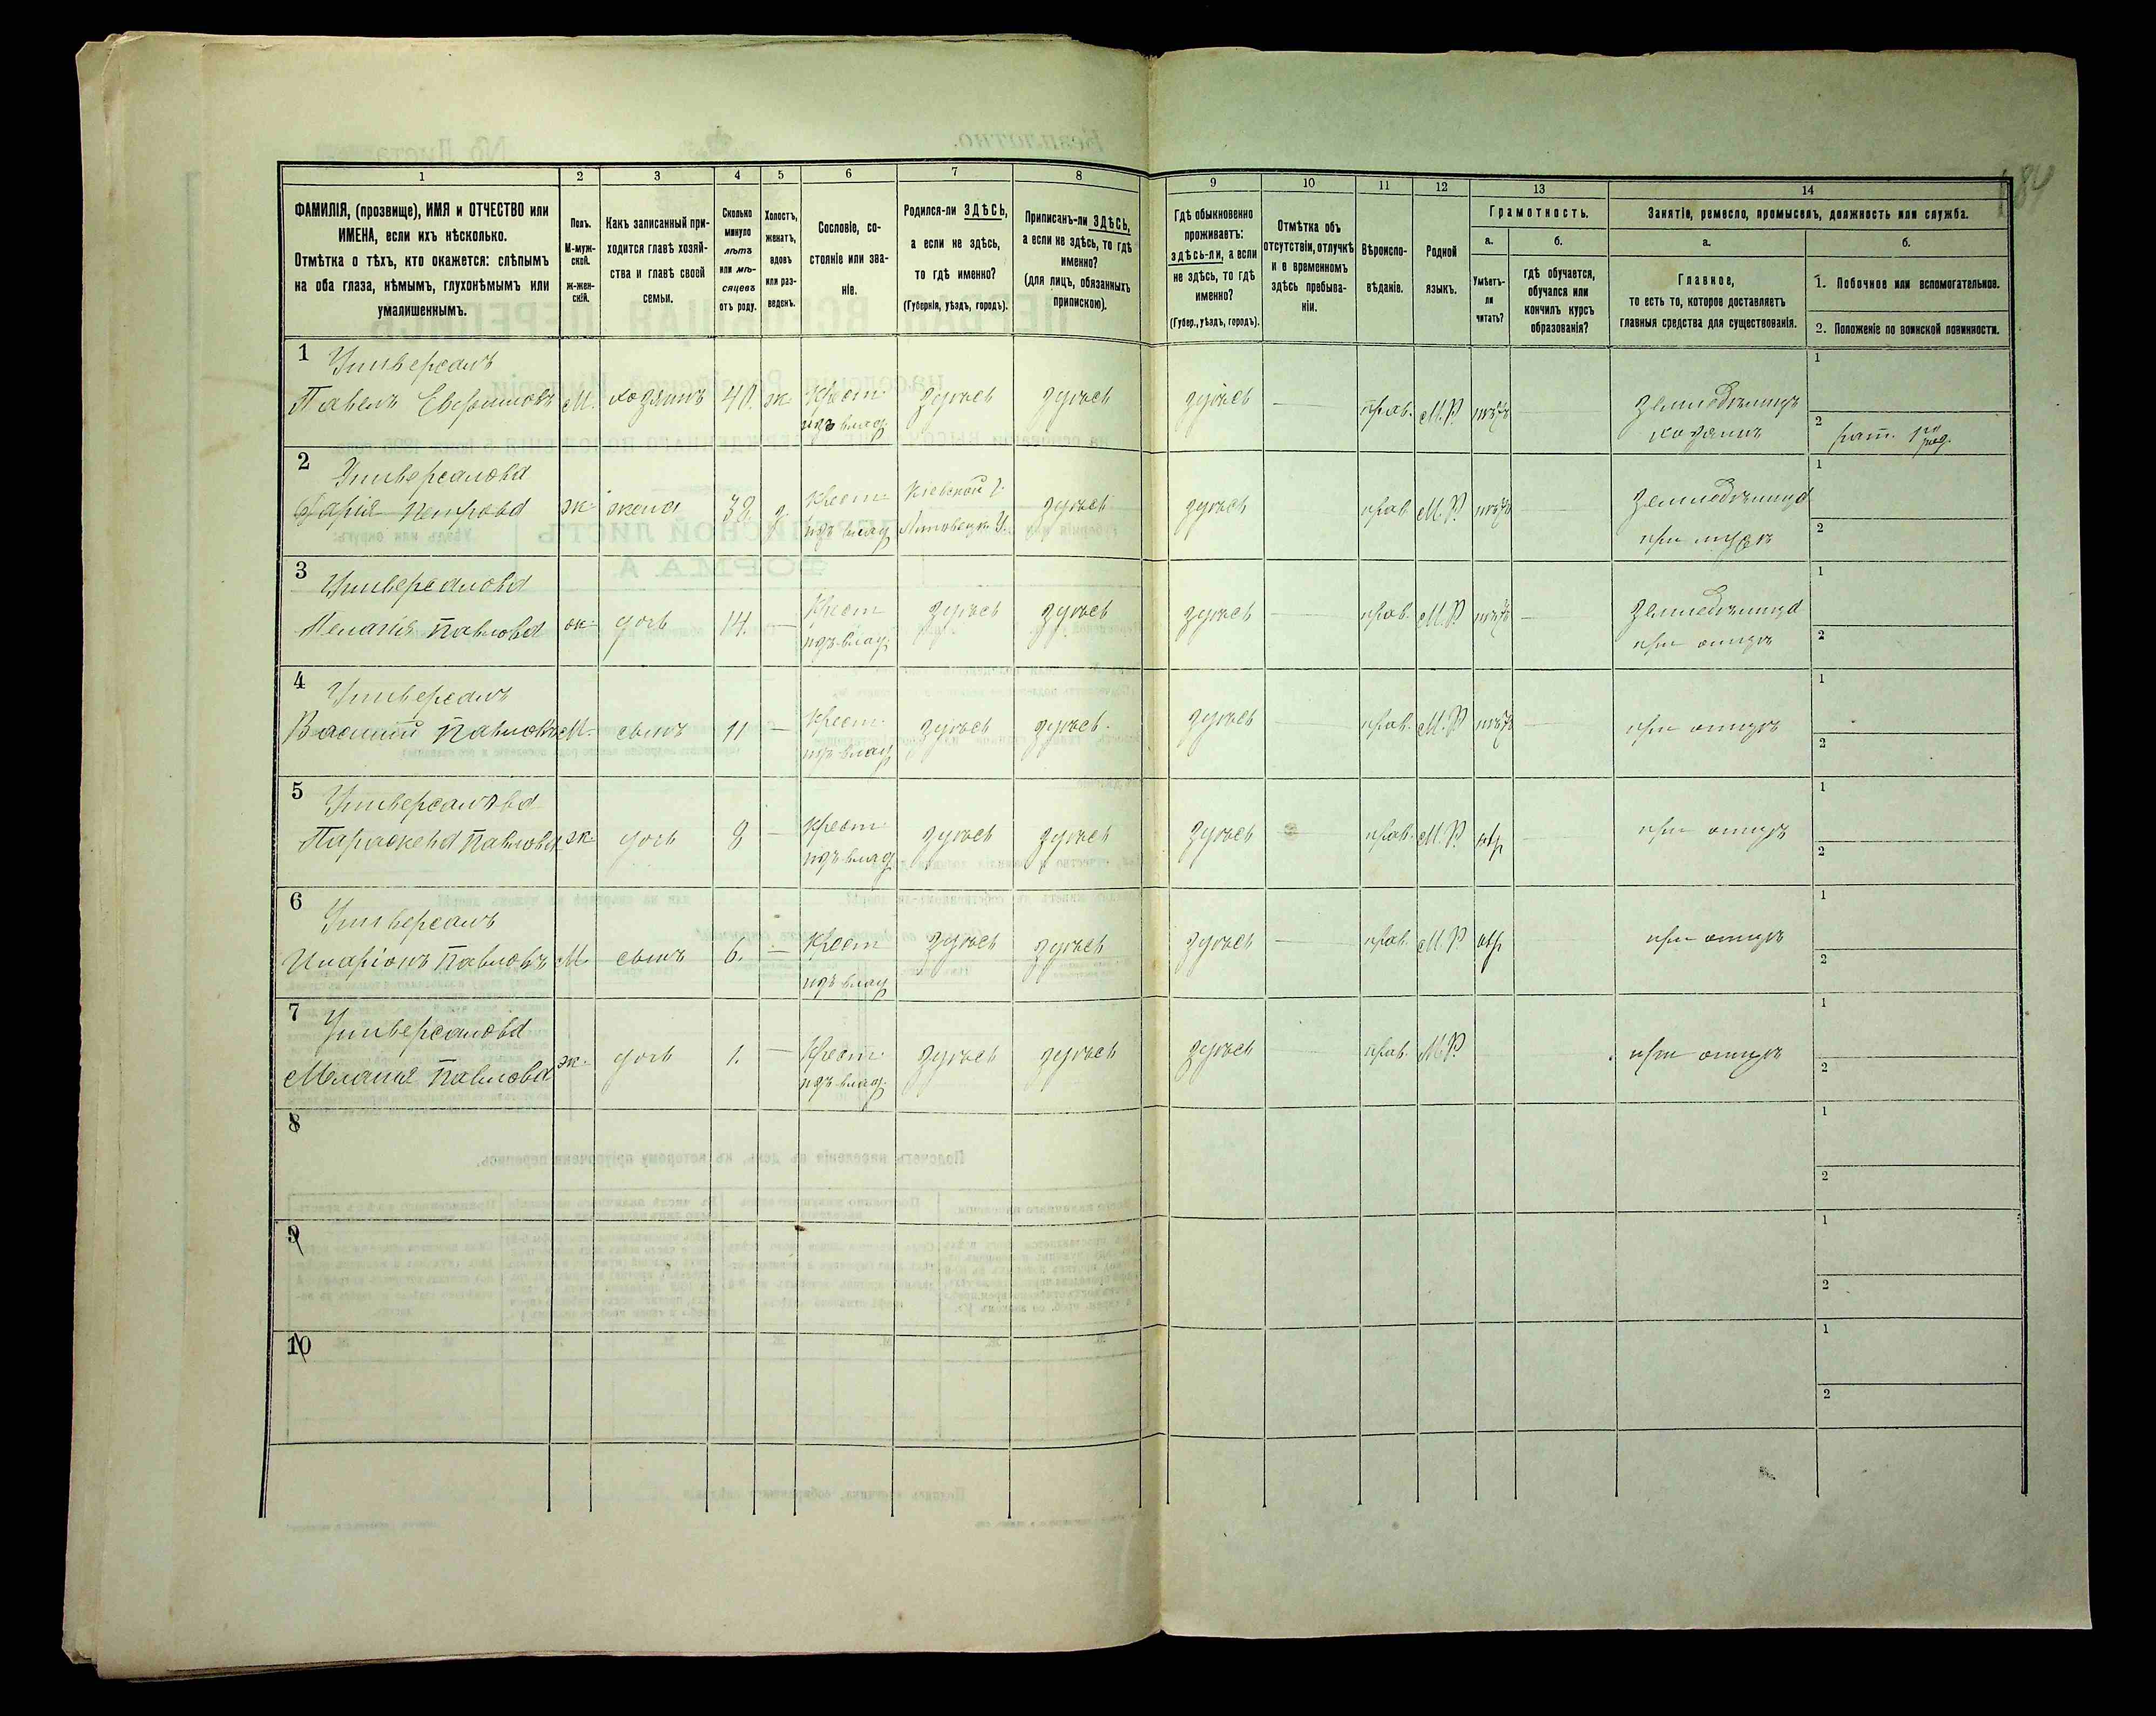 184
1 2 3 4 5 6 7 8 9 10 11 12 13 14
ФАМИЛІЯ, (прозвище), ИМЯ и ОТЧЕСТВО или
ИМЕНА, если ихъ нѣсколько.
Отмѣтка о тѣхъ, кто окажется: слѣпымъ
на оба глаза, нѣмымъ, глухонѣмымъ или
умалишеннымъ.
Полъ.
М-муж-
ской.
ж-жен-
скій.
Какъ записанный при-
ходится главѣ хозяй-
ства и главѣ своей
семьи.
Сколько
минуло
лѣтъ
или мѣ-
сяцевъ
отъ роду.
Холостъ,
женатъ,
вдовъ
или раз-
веденъ.
Сословіе, со-
стояніе или зва-
ніе.
Родился-ли ЗДѢСЬ,
а если не здѣсь,
то гдѣ именно?
(Губернія, уѣздъ, городъ).
Приписанъ-ли ЗДѢСЬ,
а если не здѣсь, то гдѣ
именно?
(для лицъ, обязанныхъ
припискою).
Гдѣ обыкновенно
проживаетъ:
здѣсь-ли, а если
не здѣсь, то гдѣ
именно?
(Губер., уѣздъ, городъ).
Отмѣтка объ
отсутствіи, отлучкѣ
и о временномъ
здѣсь пребыва-
ніи.
Вѣроиспо-
вѣданіе.
Родной
языкъ.
Грамотность.
а.
Умѣетъ-
ли
читать?
б.
гдѣ обучается,
обучался или
кончилъ курсъ
образованія?
Занятіе, ремесло, промыселъ, должность или служба.
а.
Главное,
то есть то, которое доставляетъ
главныя средства для существованія.
б.
1. Побочное или вспомогательное.
2. Положеніе по воинской повинности.
1 Универсалъ
Павелъ Евфимовъ М. хозяинъ 40. ж. Крест. здѣсь здѣсь здѣсь — прав. М.Р. нѣтъ Земледѣлецъ 1
изъ влад. хозяинъ 2 рат. 1го раз.
2 Универсалова
Дарія Петрова ж. жена 38. з. Крест. Кіевской г. здѣсь здѣсь прав. М.Р. нѣтъ Земледѣлица 1
изъ влад. Липовецк. У. при мужѣ 2
3 Универсалова
Пелагія Павлова ж. дочь 14. — Крест здѣсь здѣсь здѣсь — прав. М.Р. нѣтъ — Земледѣлица 1
изъ влад. при отцѣ 2
4 Универсалъ
Василій Павловъ М. сынъ 11 — Крест. здѣсь здѣсь. здѣсь — прав. М.Р. нѣтъ — при отцѣ 1
изъ влад. 2
5 Универсалова
Параскева Павлова ж. дочь 8 — Крест. здѣсь здѣсь здѣсь прав. М.Р. — при отцѣ 1
изъ влад 2
6 Универсалъ
Иларіонъ Павловъ М. сынъ 6. — Крест здѣсь здѣсь здѣсь — прав. М.Р. при отцѣ 1
изъ влад 2
7 Универсалова
Меланія Павлова ж. дочь 1. — Крест. здѣсь здѣсь здѣсь прав. М.Р. при отцѣ 1
изъ влад. 2
8 1
2
9 1
2
10 1
2